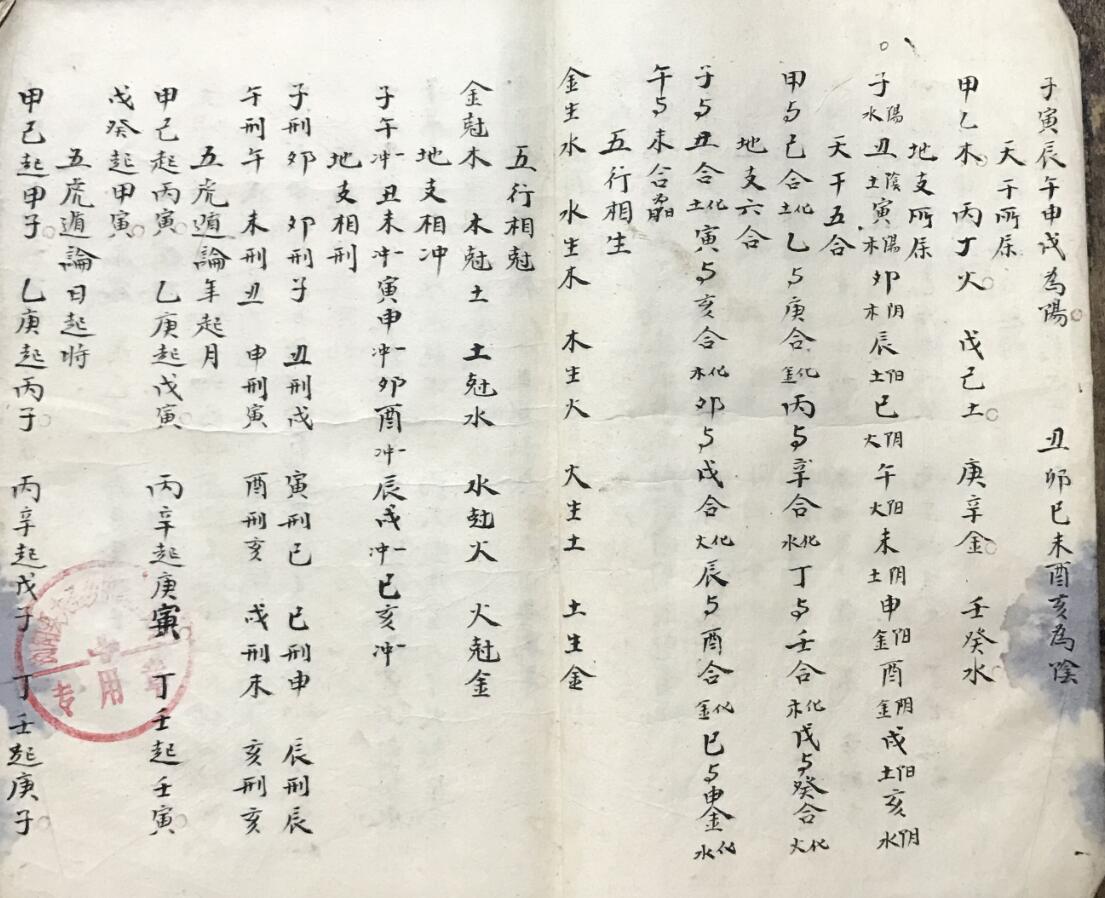 子寅辰午申戌為陽。 丑卯巳未酉亥為陰
天干所属
甲乙木。 丙丁火。 戊己土。 庚辛金。 壬癸水
地支所属
子陽水 丑陰土 寅陽木 卯阴木 辰阳土 巳阴火 午阳火 未阴土 申阳金 酉阴金 戌阳土 亥阴水
天干五合
甲与己合化土 乙与庚合化金 丙与辛合化水 丁与壬合化木 戊与癸合化火
地支六合
子与丑合化土 寅与亥合化木 卯与戌合化火 辰与酉合化金 巳与申金化水
午与未合
五行相生
金生水 水生木 木生火 火生土 土生金
五行相尅
金尅木 木尅土 土尅水 水尅火 火尅金
地支相冲
子午冲 丑未冲 寅申冲 卯酉冲 辰戌冲 巳亥冲
地支相刑
子刑卯 卯刑子 丑刑戌 寅刑巳 巳刑申 辰刑辰
午刑午 未刑丑 申刑寅 酉刑亥 戌刑未 亥刑亥
五虎遁論年起月
甲己起丙寅。 乙庚起戊寅。 丙辛起庚寅 丁壬起壬寅。
戊癸起甲寅。
五虎遁論日起时
甲己起甲子。 乙庚起丙子。 丙辛起戊子 丁壬起庚子。
专用章